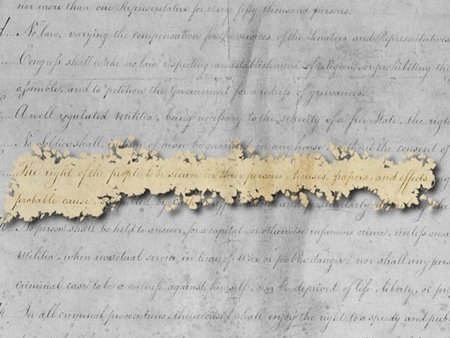 nor more than one Representative for every fifty thousand persons.
No law, varying the compensation for services of the Senators and Representatives
Congress shall make no law respecting an establishment of religion, or prohibiting the
assemble, and to petition the Government for a redress of grievances.
A well regulated Militia, being necessary to the security of a free State, the righ
No Soldier shall, in peace be quartered in any house without the consent of
The right of the people to be secure in their persons, houses, papers, and effects
probable cause, by
person shall be held to answer for a capital, or otherwise infamous crime, unless on a
Militia, when in actual service, in time of War or public danger; nor shall any pers
criminal case to be a witness against himself, nor be deprived of life, liberty, or pr
In all criminal prosecutions, the accused shall enjoy the right to a speedy and publ